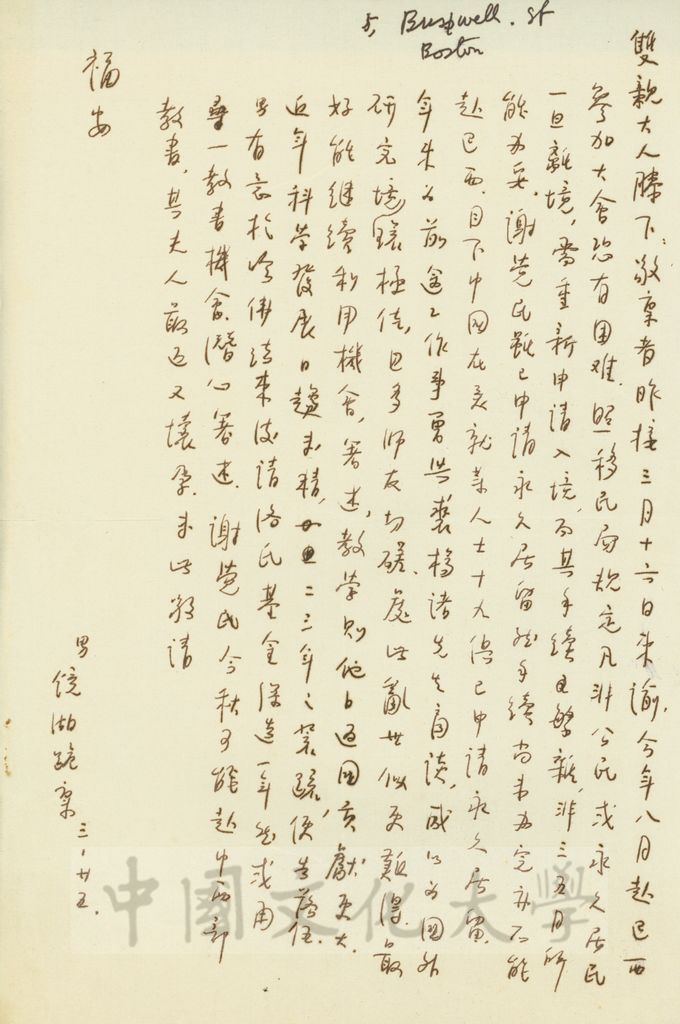 5, Buswell. St
Boston
雙親大人膝下:敬稟者昨接三月十六日来諭,今年八月赴巴西
參加大會恐有困难.照移民局規定凡非公民或永久居民
一旦離境,需重新申請入境,而其手續且繁雜,非三五月所
能为妥.謝覺民雖已申請永久居留然手續尚未办完亦不能
赴巴西.目下中国在美就業人士十九偒已申請永久居留.
年来为前途工作事曾與裘楊諸先生商談,咸以为國外
研究境環極佳,且多师友切磋.處此亂世似更難得.最
好能继續利用機会,著述,教学則他日返国貢獻更大.
近年科学發展日趨求精,二三年之榮疏,便当落伍.
男有意於今後結束後請洛氏基金深造一年然或再
尋一教書機會,潛心著述.謝覺民今秋可能赴中西部
教書,其夫人最近又懷孕.专此敬請
福安
男 鏡湖跪稟 三.廿五.
中國文化大學